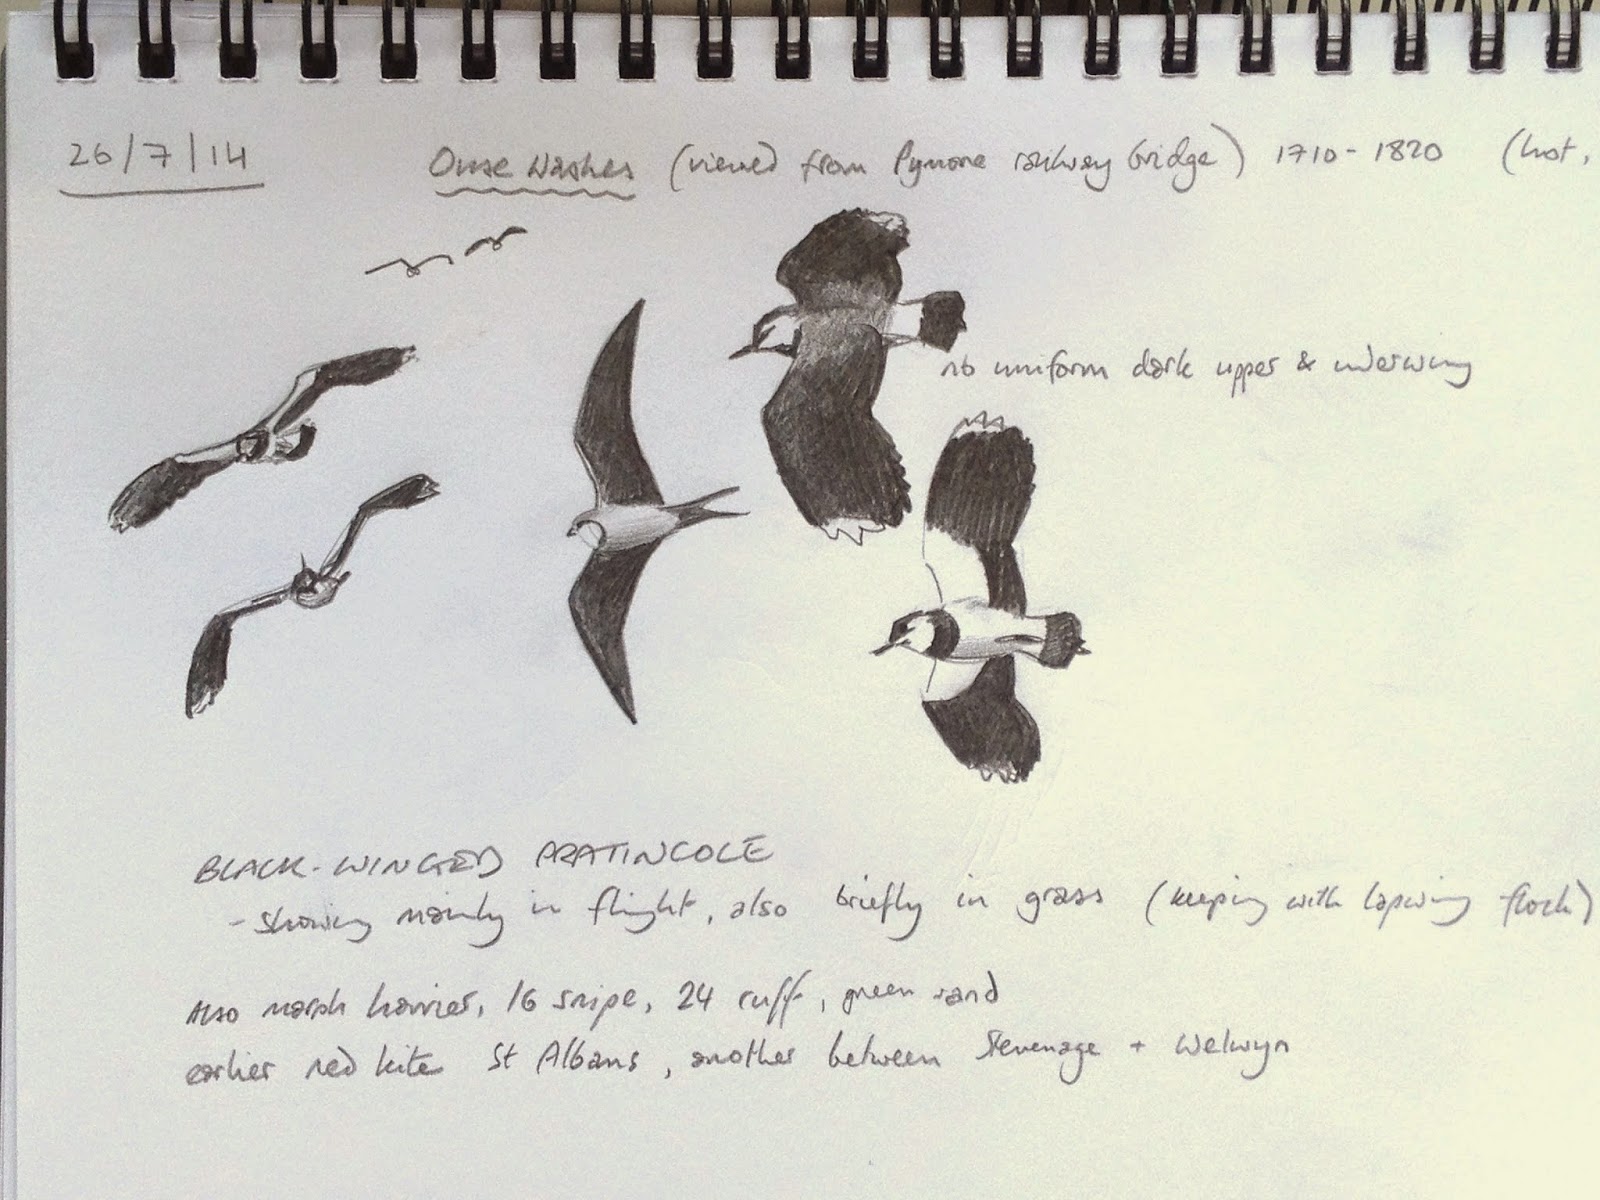 26/7/14 Ouse Washes (viewed from Pymore railway bridge) 1710-1820 (hot,
nb uniform dark upper & underwing
BLACK-WINGED PRATINCOLE
- showing mainly in flight, also briefly in grass (keeping with lapwing flock)
Also marsh harrier, 16 snipe, 24 ruff, green sand
earlier red kite St Albans, another between Stevenage + Welwyn